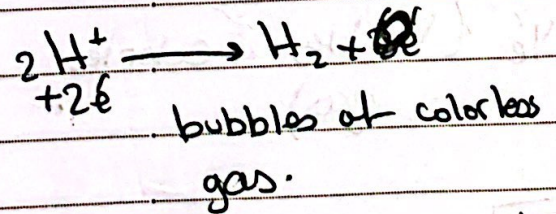 2H⁺ ⟶ H₂ +
+2é
bubbles of colorless
gas.